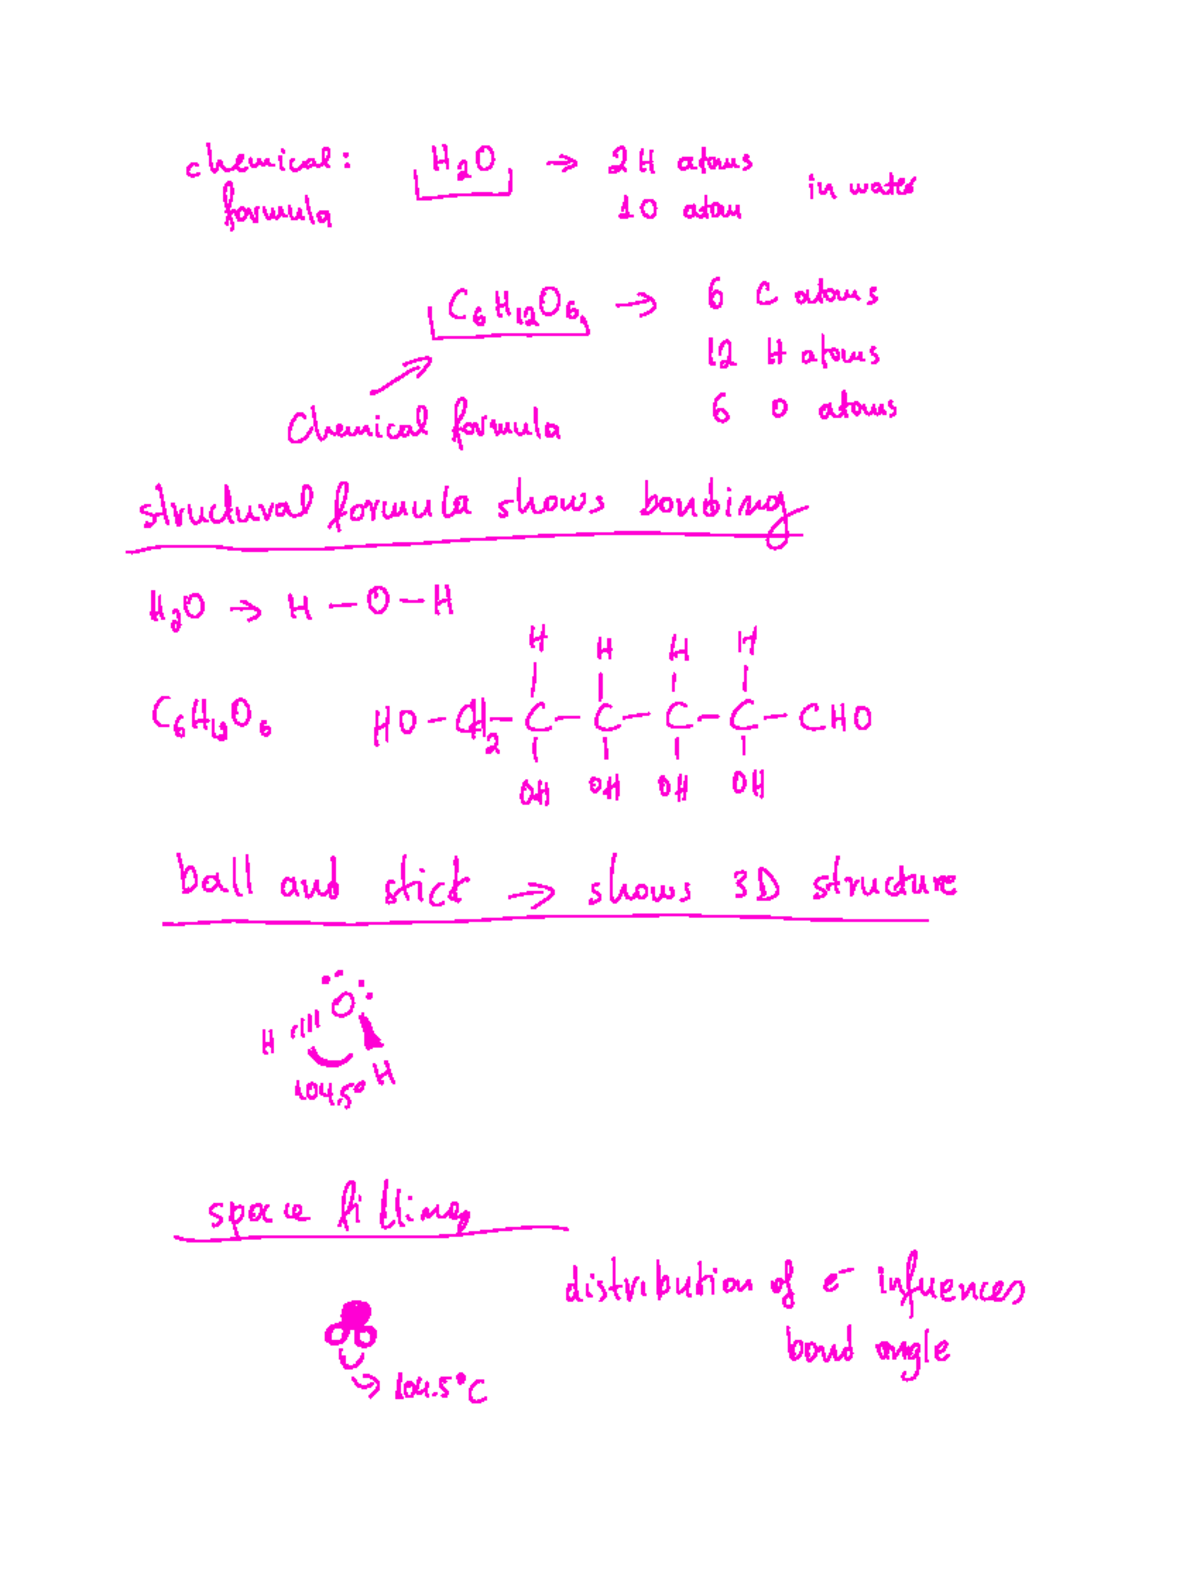 chemical: H₂O → 2H atoms in water
formula 1O atom
C₆H₁₂O₆ → 6 C atoms
12 H atoms
6 O atoms
Chemical formula
structural formula shows bonding
H₂O → H — O — H
H H H H
C₆H₁₂O₆ HO — CH₂ — C — C — C — C — CHO
OH OH OH OH
ball and stick → shows 3D structure
O
H
H
104.5°
space filling
distribution of e⁻ infuences
bond angle
→ 104.5°C